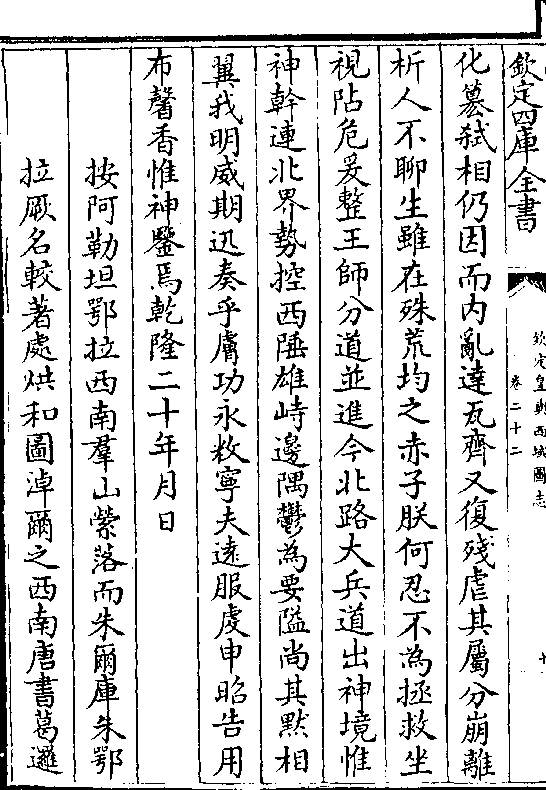 欽定四庫全書
欽定皇輿西域圖志
卷二十二
化簒弑相仍因而内亂達瓦齊又復殘虐其屬分崩離
析人不聊生雖在殊荒均之赤子朕何忍不為拯救坐
視阽危爰整王師分道並進今北路大兵道出神境惟
神幹連北界勢控西陲雄峙邊隅鬱為要隘尚其黙相
翼我明威期迅奏乎膚功永敉寧夫遠服虔申昭告用
布馨香惟神鑒焉乾隆二十年月日
按阿勒坦鄂拉西南羣山縈落而朱爾庫朱鄂
拉厥名較著處烘和圖淖爾之西南唐書葛邏